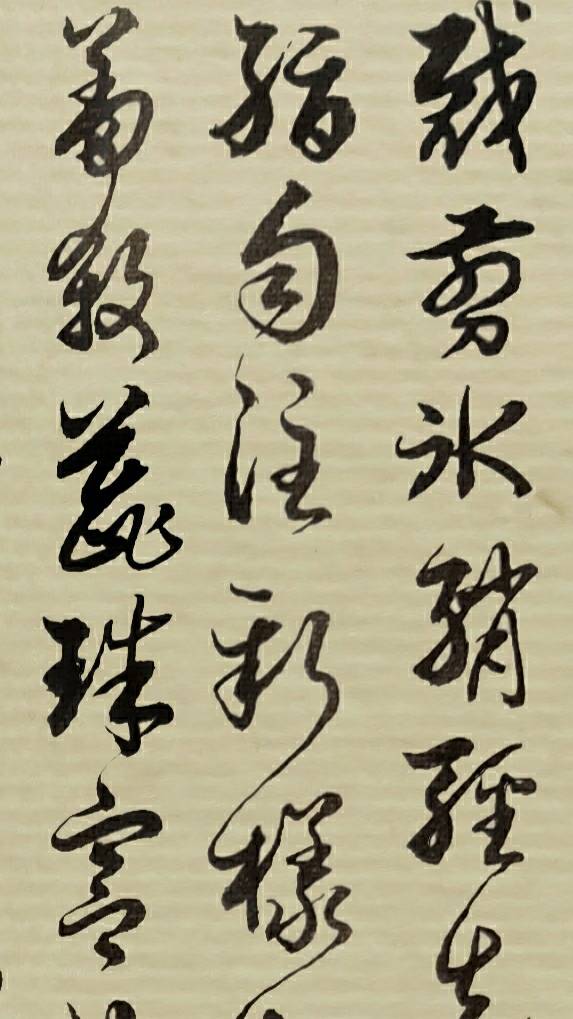 裁剪氷綃輕
脂勻注新樣
羞殺蕊珠宮